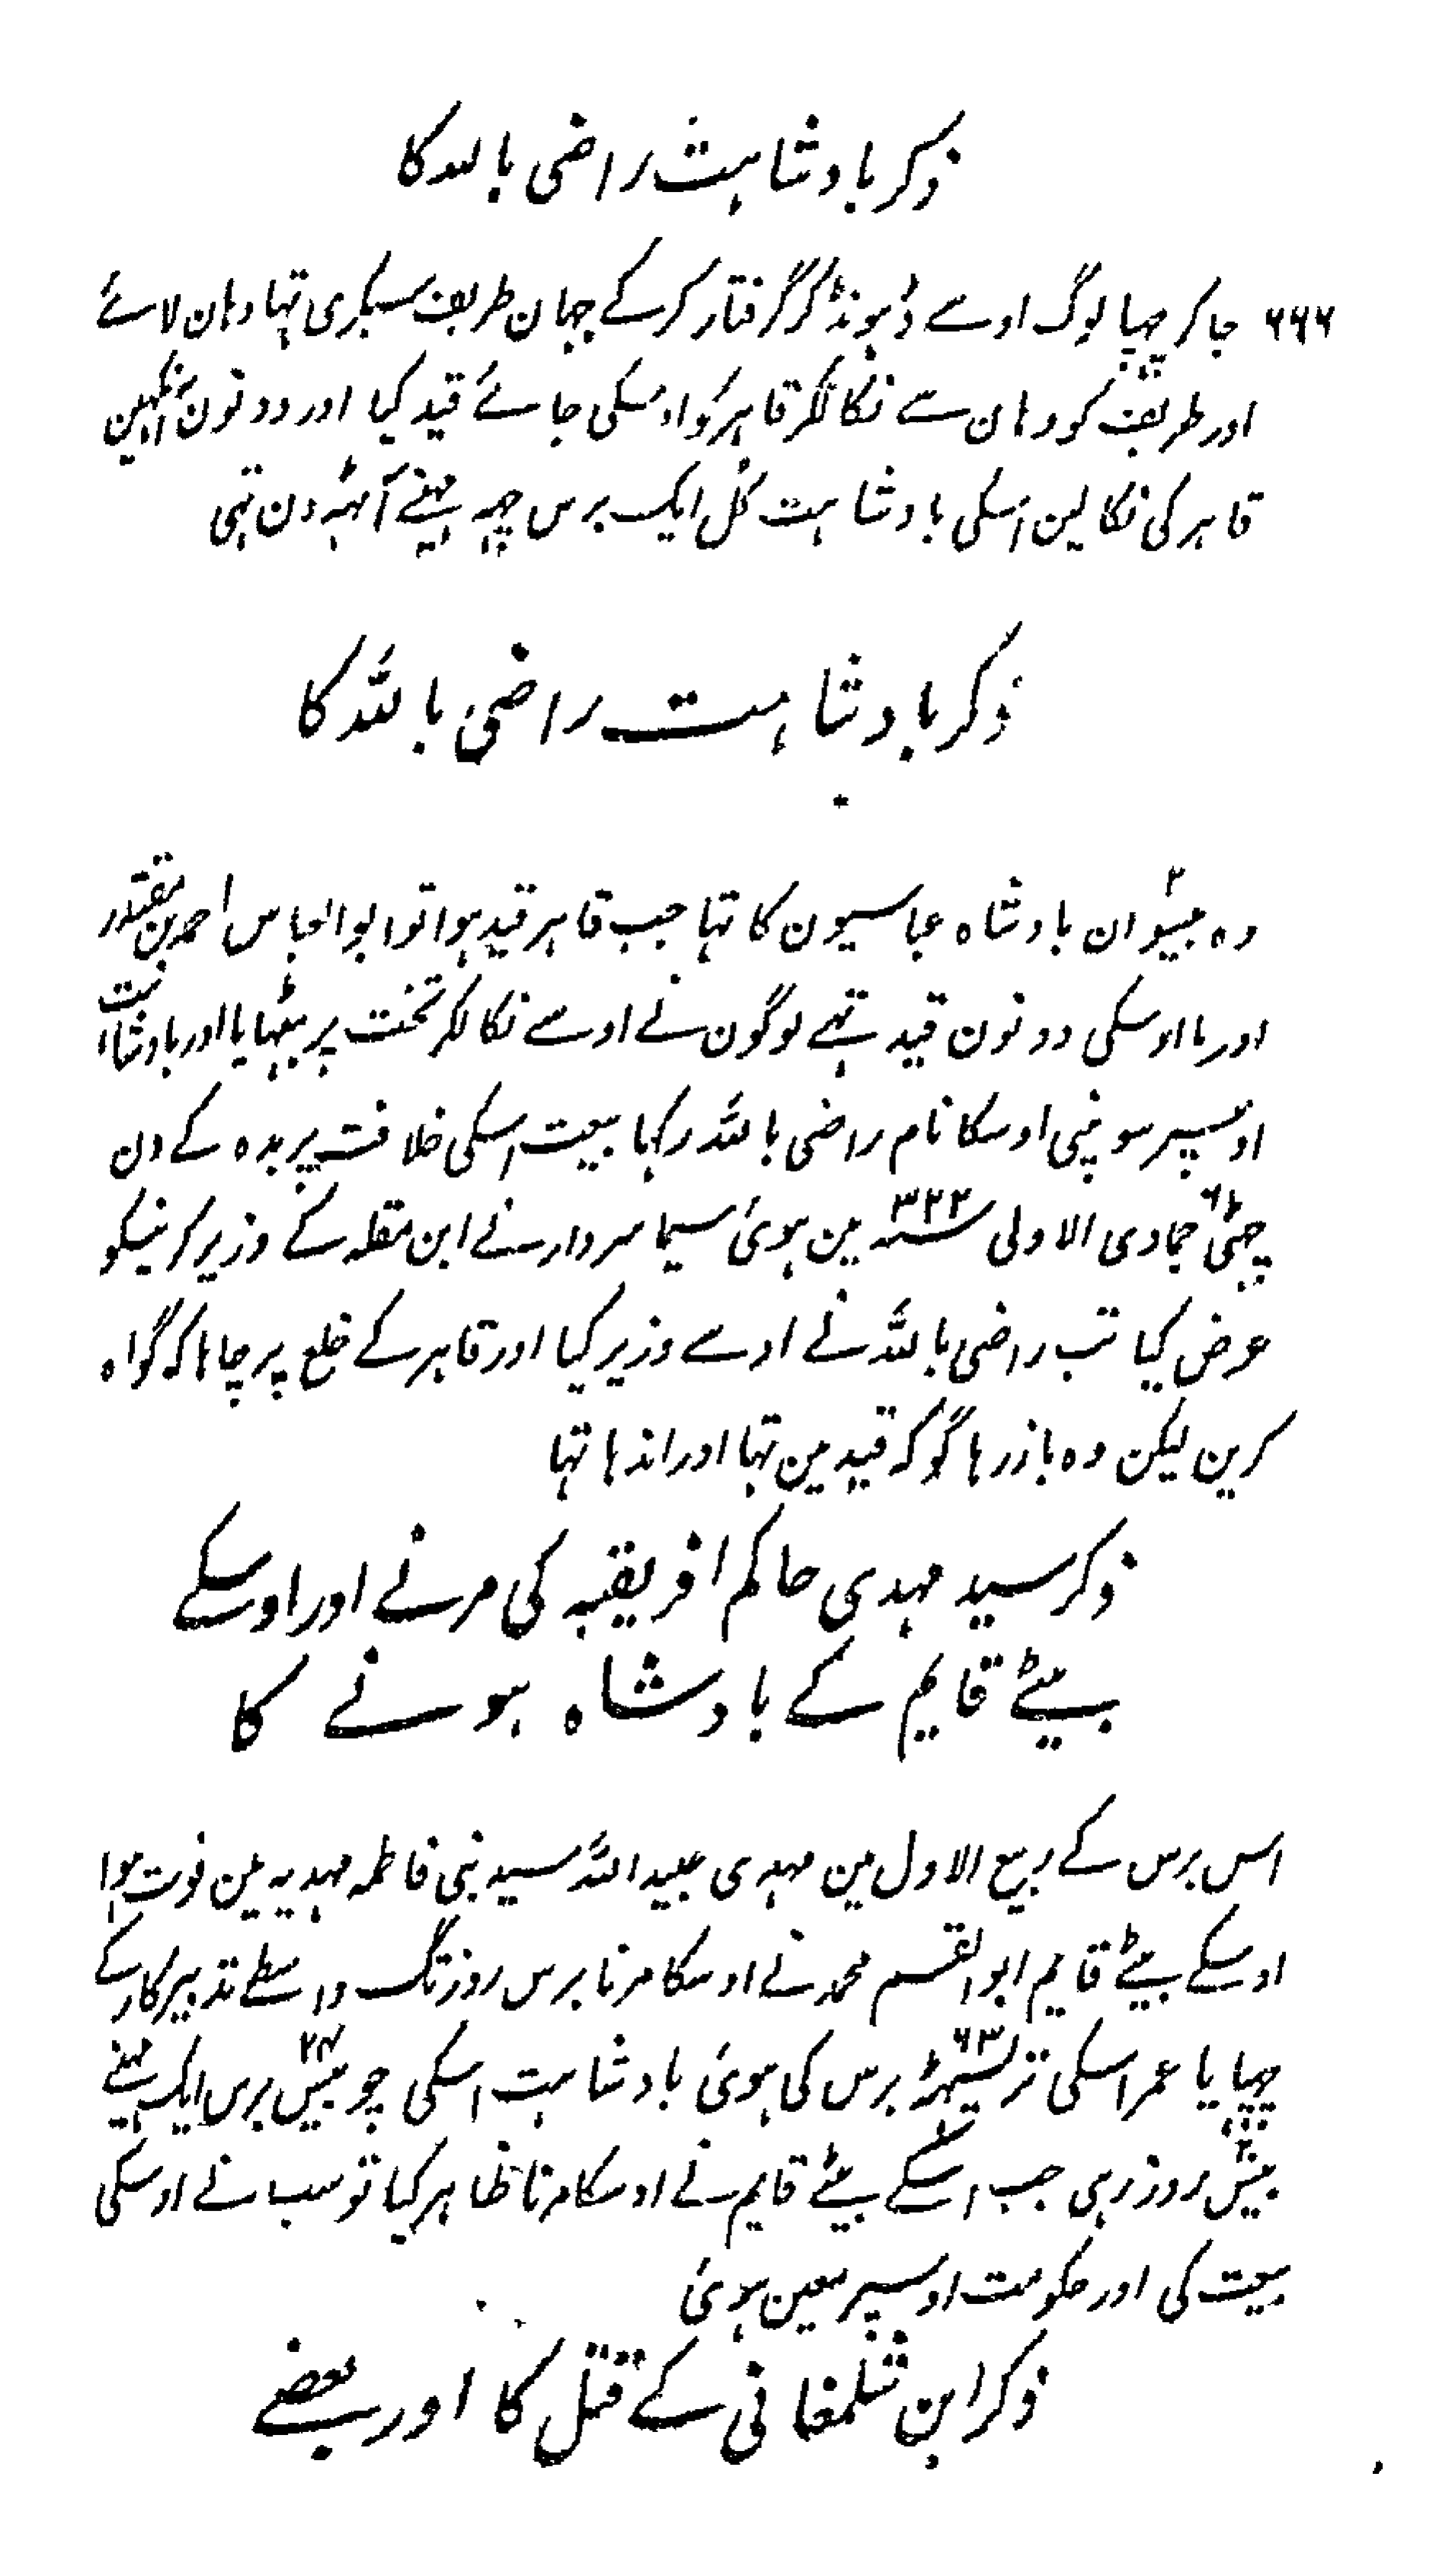 ذکر بادشاہت راضی باللہ کا
۶۶۶ جاکر چہپا لوگ اوسے ڈہونڈکر گرفتار کرکے جہان طریف سبکری تہا وہان لائے
اور طریف کو وہان سے نکالکر قاہر کو اوسکی جائے قید کیا اور دونون آنکہین
قاہر کی نکالین اسکی بادشاہت کل ایک برس چہہ مہینے آٹہہ دن تہی
ذکر بادشاہت راضی باللہ کا
وہ بیسوان بادشاہ عباسیون کا تہا جب قاہر قید ہوا تو ابو العباس احمد بن مقتدر
اور ما اوسکی دونون قید تہے لوگون نے اوسے نکالکر تخت پر بیٹہایا اور بادشاہت
اوسپر سونپی اوسکا نام راضی باللہ رکہا بیعت اسکی خلافت پر بدہ کے دن
چہٹی ۶ جمادی الاولی سنہ ۳۲۲ مین ہوئی سیما سردار نے ابن مقلہ کے وزیر کرنیکو
عرض کیا تب راضی باللہ نے اوسے وزیر کیا اور قاہر کے خلع پر چاہا کہ گواہ
کرین لیکن وہ باز رہا گو کہ قید مین تہا اور اندہا تہا
ذکر سید مہدی حاکم افریقیہ کی مرنے اور اوسکے
بیٹے قایم کے بادشاہ ہونے کا
اس برس کے ربیع الاول مین مہدی عبید اللہ سید بنی فاطمہ مہدیہ مین فوت ہوا
اوسکے بیٹے قایم ابو القسم محمد نے اوسکا مرنا برس روز تگ واسطے تدبیر کار کے
چہپایا عمر اسکی تریسٹہہ ۶۳ برس کی ہوئی بادشاہت اسکی چوبیس ۲۴ برس ایک مہینے
بیس ۲۰ روز رہی جب اسکے بیٹے قایم نے اوسکا مرنا ظاہر کیا تو سب نے اوسکی
بیعت کی اور حکومت اوسپر معین ہوئی
ذکر ابن شلمغانی کے قتل کا اور بعضے